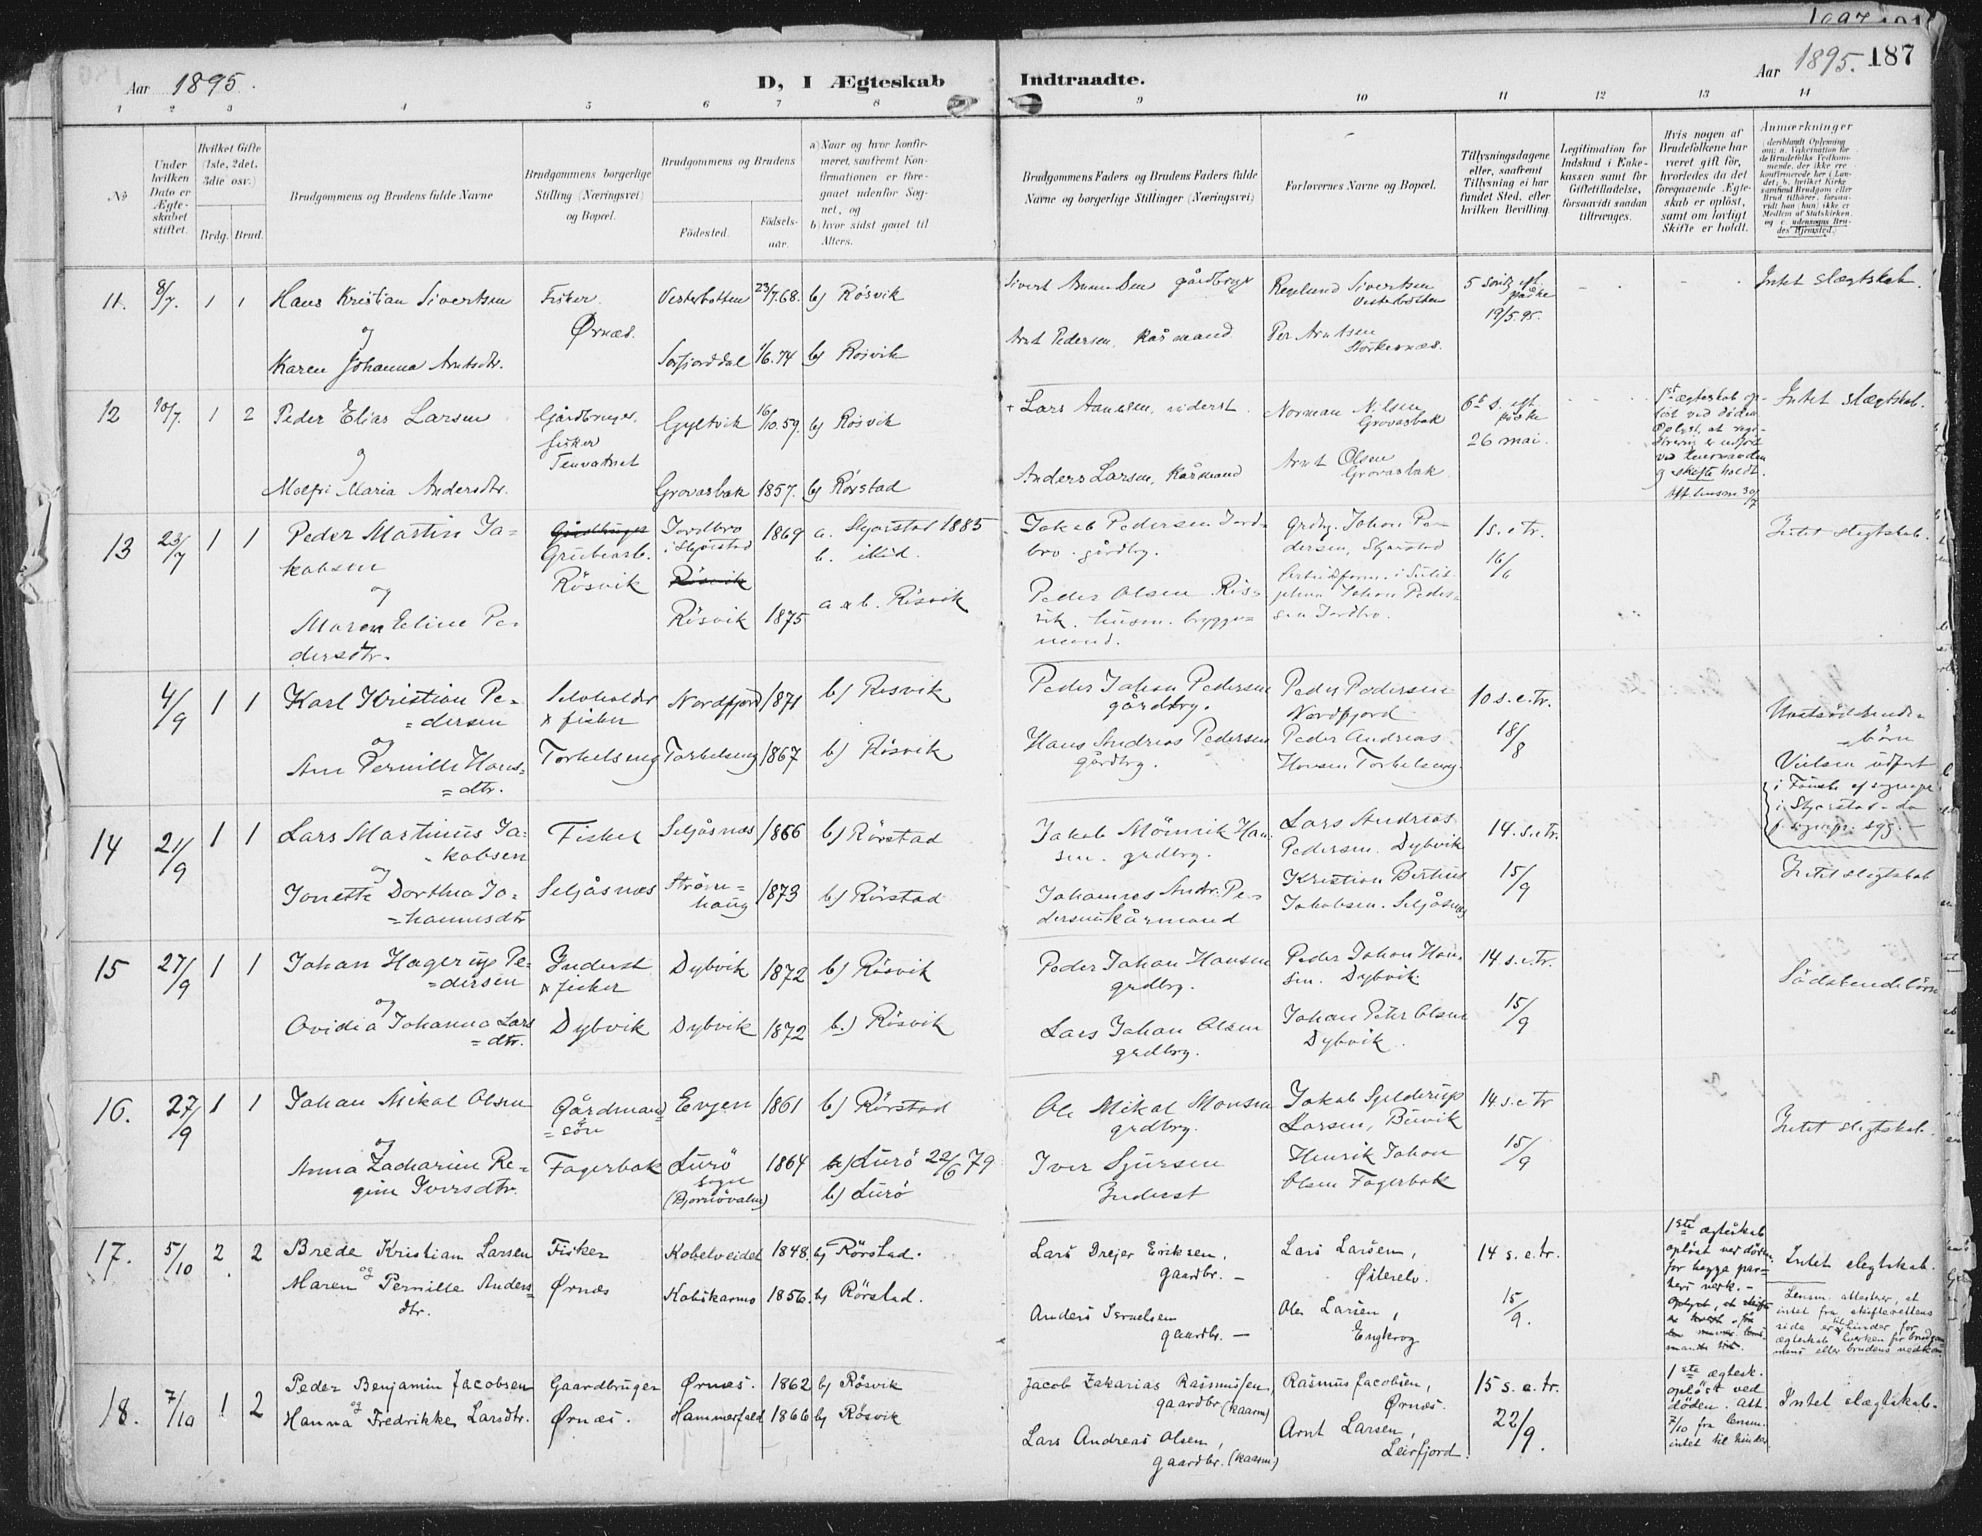 Aar 1895.
D, I Ægteskab Indtraadte.
Aar 1895. 187
1 2 3 4 5 6 7 8 9 10 11 12 13 14
No
Under hvilken Dato er Ægteskabet stiftet.
Hvilket Gifte (1ste, 2det, 3die osv.)
Brdg. Brud.
Brudgommens og Brudens fulde Navne
Brudgommens borgerlige Stilling (Næringsvei) og Bopæl.
Brudgommens og Brudens
Fødested.
Fødselsaar.
a) Naar og hvor konfirmeret, saafremt Konfirmationen er foregaaet udenfor Sognet, og
b) hvor sidst gaaet til Alters.
Brudgommens Faders og Brudens Faders fulde Navne og borgerlige Stillinger (Næringsvei)
Forlovernes Navne og Bopæl.
Tillysningsdagene eller, saafremt Tillysning ei har fundet Sted, efter hvilken Bevilling.
Legitimation for Indskud i Enkekassen samt for Giftetilladelse, forsaavidt saadan tiltrænges.
Hvis nogen af Brudefolkene har været gift før, hvorledes da det foregaaende Ægteskab er opløst, samt om lovligt Skifte er holdt.
Anmærkninger
11. 8/7. 1 1 Hans Kristian Sivertsen Fisker Vesterbotten 23/7.68. b) Røsvik
Sivert gårdbrug Sivertsen Vesterbotten 5 Sönd. eft. påske Intet slægtskab.
og Ørnæs. 19/5.95.
Karen Johanna Arntsdtr. Sørfjorddal 1/6.74 b) Røsvik
Arnt Pedersen, Kårmand Per Arntsen Storkersnæs.
12 10/7. 1 2 Peder Elias Larsen Gårdbruger, Gyltvik 16/10.59. b) Røsvik
+ Lars inderst Norman Nilsen Grovasbak 6te s. eft. påske 26 mai. Intet slægtskab.
og fisker Tenvatnet
1ste ægteskab opløst ved døden.
Maria Andersdtr. Grovasbak 1857. b) Rørstad
Anders Larsen, Kårmand Arnt Olsen Grovasbak.
og skifte holdt.
13 23/7 1 1 Peder Martin Jakobsen Grubearb. Røsvik Jordbro i Skjerstad 1869 a. Skjerstad 1885 b. ibid.
Jakob Pedersen Jordbro. gårdbr. Grdbr. Johan Pedersen, Skjerstad 1 s. e. tr. 16/6 Intet slegtskab.
og
Maren Eline Pedersdtr. Røsvik 1875 a & b. Røsvik
Peder Olsen Røsvik. husm. bryggemand. Johan Pedersen Jordbro.
4/9 1 1 Karl Kristian Pedersen Selvholder & fisker Nordfjord 1871 b) Røsvik
Peder Johan Pedersen gårdbrg. Peder Pedersen Nordfjord 10 s. e. tr. 18/8
og
Ane Pernille Hansdtr. Torkelseng Torkelseng 1867 b) Røsvik
Hans Andreas Pedersen gårdbrg. Peder Andreas Hansen Torkelseng.
Vielsen udført i Fauske af sognepr. i Skjerstad
14 21/9 1 1 Lars Martinus Jakobsen Fisker Seljåsnæs 1866 b) Rørstad
Jakob Hansen. grdbrg. Lars Andreas Pedersen. Dybvik 14. s. e. tr. 15/9 Intet slegtskab
og
Jonette Dorthea Johannesdtr Seljåsnæs Strømhaug 1873 b) Rørstad
Johannes Andr. Pedersen Kårmand Kristian Bertius Jakobsen. Seljåsnæs
15 27/9 1 1 Johan Hagerup Pedersen Inderst & fisker Dybvik 1872 b) Røsvik
Peder Johan Hansen grdbrg. Peder Johan Hansen. Dybvik 14 s. e. tr. 15/9 Södskendebörn
og
Ovidia Johanna Larsdtr. Dybvik Dybvik 1872 b.) Røsvik
Lars Johan Olsen grdbrg. Johan Peter Olsen Dybvik.
16. 27/9 1 1 Johan Mikal Olsen Gårdmandsön Evjen 1861 b) Rørstad
Ole Mikal Monsen grdbrg. Jakob Gylderup Larsen, Buvik 14 s. e tr 15/9 Intet slegtskab.
og
Anna Zacharine Regine Iversdtr. Fagerbak Lurö sogn 1864 a) Lurö 22/6 79 b) Lurö
Iver Sjursen Inderst Henrik Johan Olsen Fagerbak
17. 5/10 2 2 Brede Kristian Larsen Fisker Kobelveidet 1848. b) Rörstad.
Lars Drejer Eriksen, gaardbr. – Lars Larsen, 14 s. e. tr. 15/9. Intet slegtskab.
1ste ægteskab opløst ved døden for begge parters verk. –
Lensm. attesterer, at intet fra skifterettens side er til hinder for ægteskab hverken for brudgommens eller brudens vedkom.
og
Maren Pernille Andersdtr. Ørnæs Kobskarmo 1856. b) Rörstad.
Anders Israelsen gaardbr. – Ole Larsen, Engkrog
18. 7/10 1 2 Peder Benjamin Jacobsen Gaardbruger Ørnæs. 1862 b) Røsvik
Jacob Zakarias Rasmussen, gaardbr. (kaarm) Rasmus Jacobsen, Ørnæs. 15 s. e. tr. 22/9. Intet slægtskab.
1ste ægtesk. opløst ved döden. Att. 7/10 fra lensm. intet til hinder
og
Hanna Fredrikke Larsdtr. Ørnæs. Hammerfald 1866 b) Røsvik
Lars Andreas Olsen, gaardbr. (kaarm) Arnt Larsen, Leirfjord.